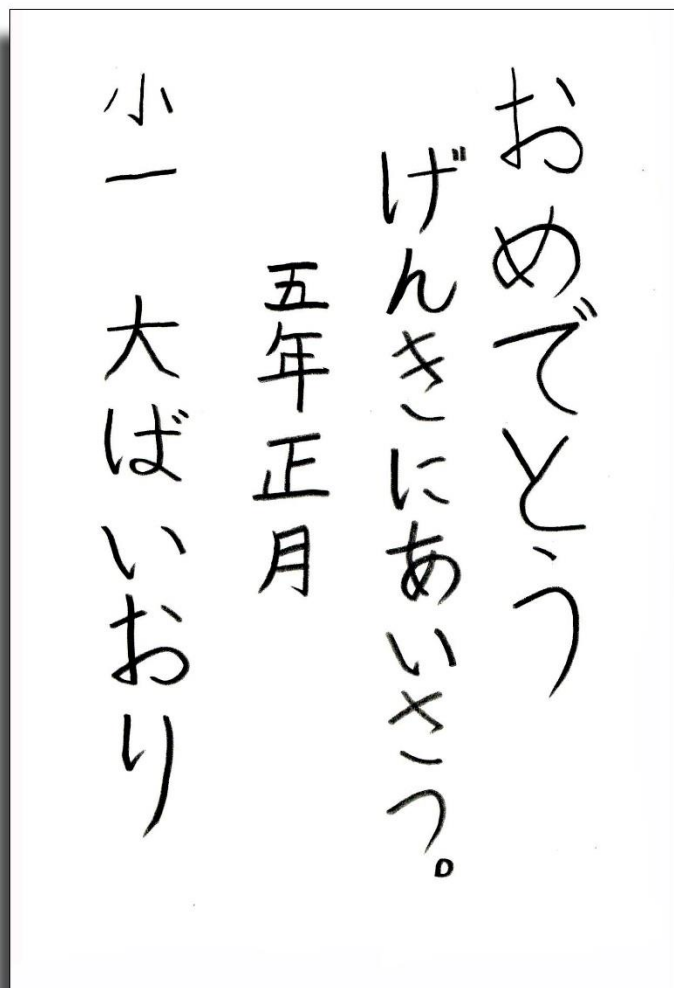 おめでとう
げんきにあいさつ。
五年正月
小一 大ばいおり